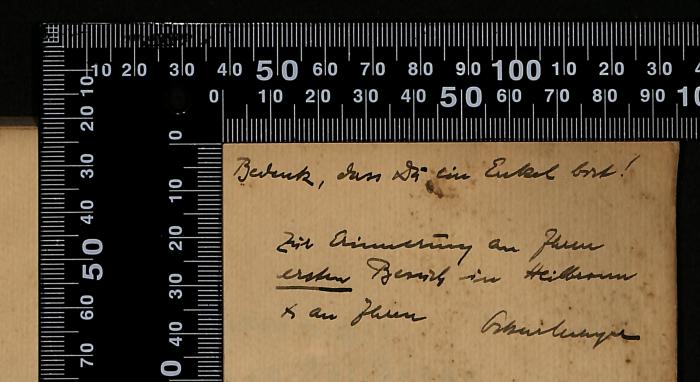 10 20 30 40 50 60 70 80 90 100 10 20 30 4
0 10 20 30 40 50 60 70 80 90 10
10 20 30 40 50 60 70
0 10 20 30 40 0
Bedenk, dass Du ein Enkel bist!
Zur Erinnerung an Ihren
ersten Besuch in Heilbronn
& an Ihren